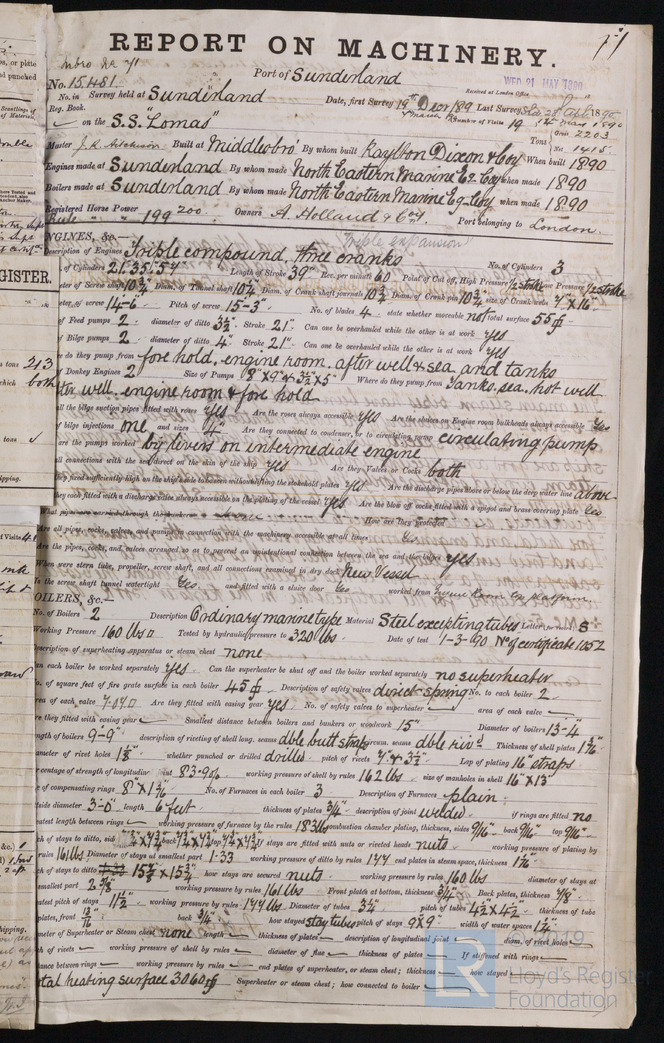 REPORT ON MACHINERY.
Port of Sunderland
No. 15,481. Received at London Office WED 21 MAY 1890
No. in Survey held at Sunderland Date, first Survey 19th Decr 189 Last Survey 1890
Reg. Book. Number of Visits 19
on the S.S. "Lomas" Tons 2203 1415
Master Built at Middlesbro By whom built Raylton Dixon & Coy When built 1890
Engines made at Sunderland By whom made North Eastern Marine Eg. Coy when made 1890
Boilers made at Sunderland By whom made North Eastern Marine Eg. Coy when made 1890
Registered Horse Power 199 200. Owners A. Holland & Coy Port belonging to London.
ENGINES, &c.— Triple expansion
Description of Engines Triple compound, three cranks
of Cylinders 21" 35" 57" Length of Stroke 39" Rev. per minute 60 Point of Cut off, High Pressure 1/2 stroke Low Pressure 1/2 stroke No. of Cylinders 3
ter of Screw shaft 10 3/4 Diam. of Tunnel shaft 10 1/2 Diam. of Crank shaft journals 10 3/4 Diam. of Crank pin 10 3/4 size of Crank webs 7" x 16"
eter of screw 14-6" Pitch of screw 15-3" No. of blades 4 state whether moveable not total surface 55
of Feed pumps 2 diameter of ditto 3 1/2" Stroke 21" Can one be overhauled while the other is at work yes
of Bilge pumps 2 diameter of ditto 4" Stroke 21" Can one be overhauled while the other is at work yes
do they pump from fore hold, engine room, after well & sea and tanks
of Donkey Engines 2 Size of Pumps 8" x 9" & 3 1/2" x 5" Where do they pump from Tanks, sea, hot well
ter well, engine room & fore hold
all the bilge suction pipes fitted with roses yes Are the roses always accessible yes Are the sluices on Engine room bulkheads always accessible yes
of bilge injections one and sizes 4" Are they connected to condenser, or to circulating pump circulating pump
are the pumps worked by levers on intermediate engine
all connections with the sea direct on the skin of the ship yes Are they Valves or Cocks both
they fixed sufficiently high on the ship's side to be seen without lifting the stokehold plates yes Are the discharge pipes above or below the deep water line above
they each fitted with a discharge valve always accessible on the plating of the vessel yes Are the blow off cocks fitted with a spigot and brass covering plate yes
What pipes are carried through the bunkers none How are they protected
Are all pipes, cocks, valves, and pumps in connection with the machinery accessible at all times yes
Are the pipes, cocks, and valves arranged so as to prevent an unintentional connection between the sea and the bilges yes
When were stern tube, propeller, screw shaft, and all connections examined in dry dock New Vessel
Is the screw shaft tunnel watertight yes and fitted with a sluice door yes worked from Engine Room top platform
OILERS, &c.—
No. of Boilers 2 Description Ordinary marine type Material Steel excepting tubes Letter S
Working Pressure 160 lbs Tested by hydraulic pressure to 320 lbs. Date of test 1-3-90 No of certificate 1052
escription of superheating apparatus or steam chest none
an each boiler be worked separately yes Can the superheater be shut off and the boiler worked separately no superheater
o. of square feet of fire grate surface in each boiler 45 Description of safety valves direct spring No. to each boiler 2
rea of each valve 7.07 Are they fitted with easing gear yes No. of safety valves to superheater area of each valve
re they fitted with easing gear Smallest distance between boilers and bunkers or woodwork 15" Diameter of boilers 13-4"
ngth of boilers 9'-9" description of riveting of shell long. seams dble butt straps circum. seams dble riv. Thickness of shell plates
ameter of rivet holes 1 1/8" whether punched or drilled drilled pitch of rivets 7" & 3 1/2" Lap of plating 16" straps
er centage of strength of longitudinal 83.9% working pressure of shell by rules 162 lbs size of manholes in shell 16" x 13"
e of compensating rings No. of Furnaces in each boiler 3 Description of Furnaces plain
side diameter 3'-0" length 6 feet thickness of plates 3/4" description of joint welded if rings are fitted no
eatest length between rings working pressure of furnace by the rules 183 lbs combustion chamber plating, thickness, sides 9/16" back 9/16" top 9/16"
ch of stays to ditto, sides 7 1/4" x 7 1/2" back 7 1/2" x 7 1/2" top 7 1/2" x 7 1/2" If stays are fitted with nuts or riveted heads nuts working pressure of plating by
rules 161 lbs Diameter of stays at smallest part 1.33 working pressure of ditto by rules 177 end plates in steam space, thickness
ch of stays to ditto 15 5/8" x 15 3/4" how stays are secured nuts working pressure by rules 160 lbs diameter of stays at
smallest part 2 7/8" working pressure by rules 161 lbs Front plates at bottom, thickness 3/4" Back plates, thickness 7/8"
eatest pitch of stays 11 1/2" working pressure by rules 177 lbs Diameter of tubes 3 1/4" pitch of tubes 4 1/2" x 4 1/2" thickness of tube
plates, front 13/16" back 3/4" how stayed stay tubes pitch of stays 9" x 9" width of water spaces 1 1/4"
meter of Superheater or Steam chest none length thickness of plates description of longitudinal joint diam. of rivet holes
ch of rivets working pressure of shell by rules diameter of flue thickness of plates If stiffened with rings
tance between rings working pressure by rules end plates of superheater, or steam chest; thickness how stayed
otal heating surface 3060 Superheater or steam chest; how connected to boiler
GISTER.
213
both
© 2019
Lloyd's Register
Foundation